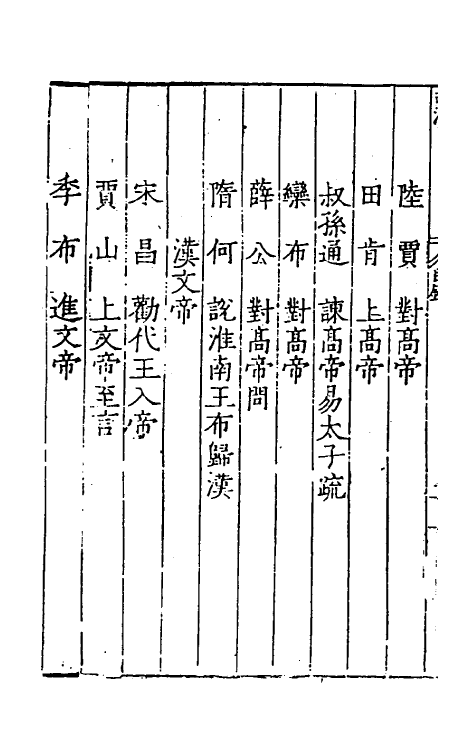 陸賈 對高帝
田肯 上高帝
叔孫通 諫高帝易太子疏
欒布 對高帝
薛公 對高帝問
隋何 說淮南王布歸漢
漢文帝
宋昌 勸代王入帝
賈山 上文帝至言
季布 進文帝